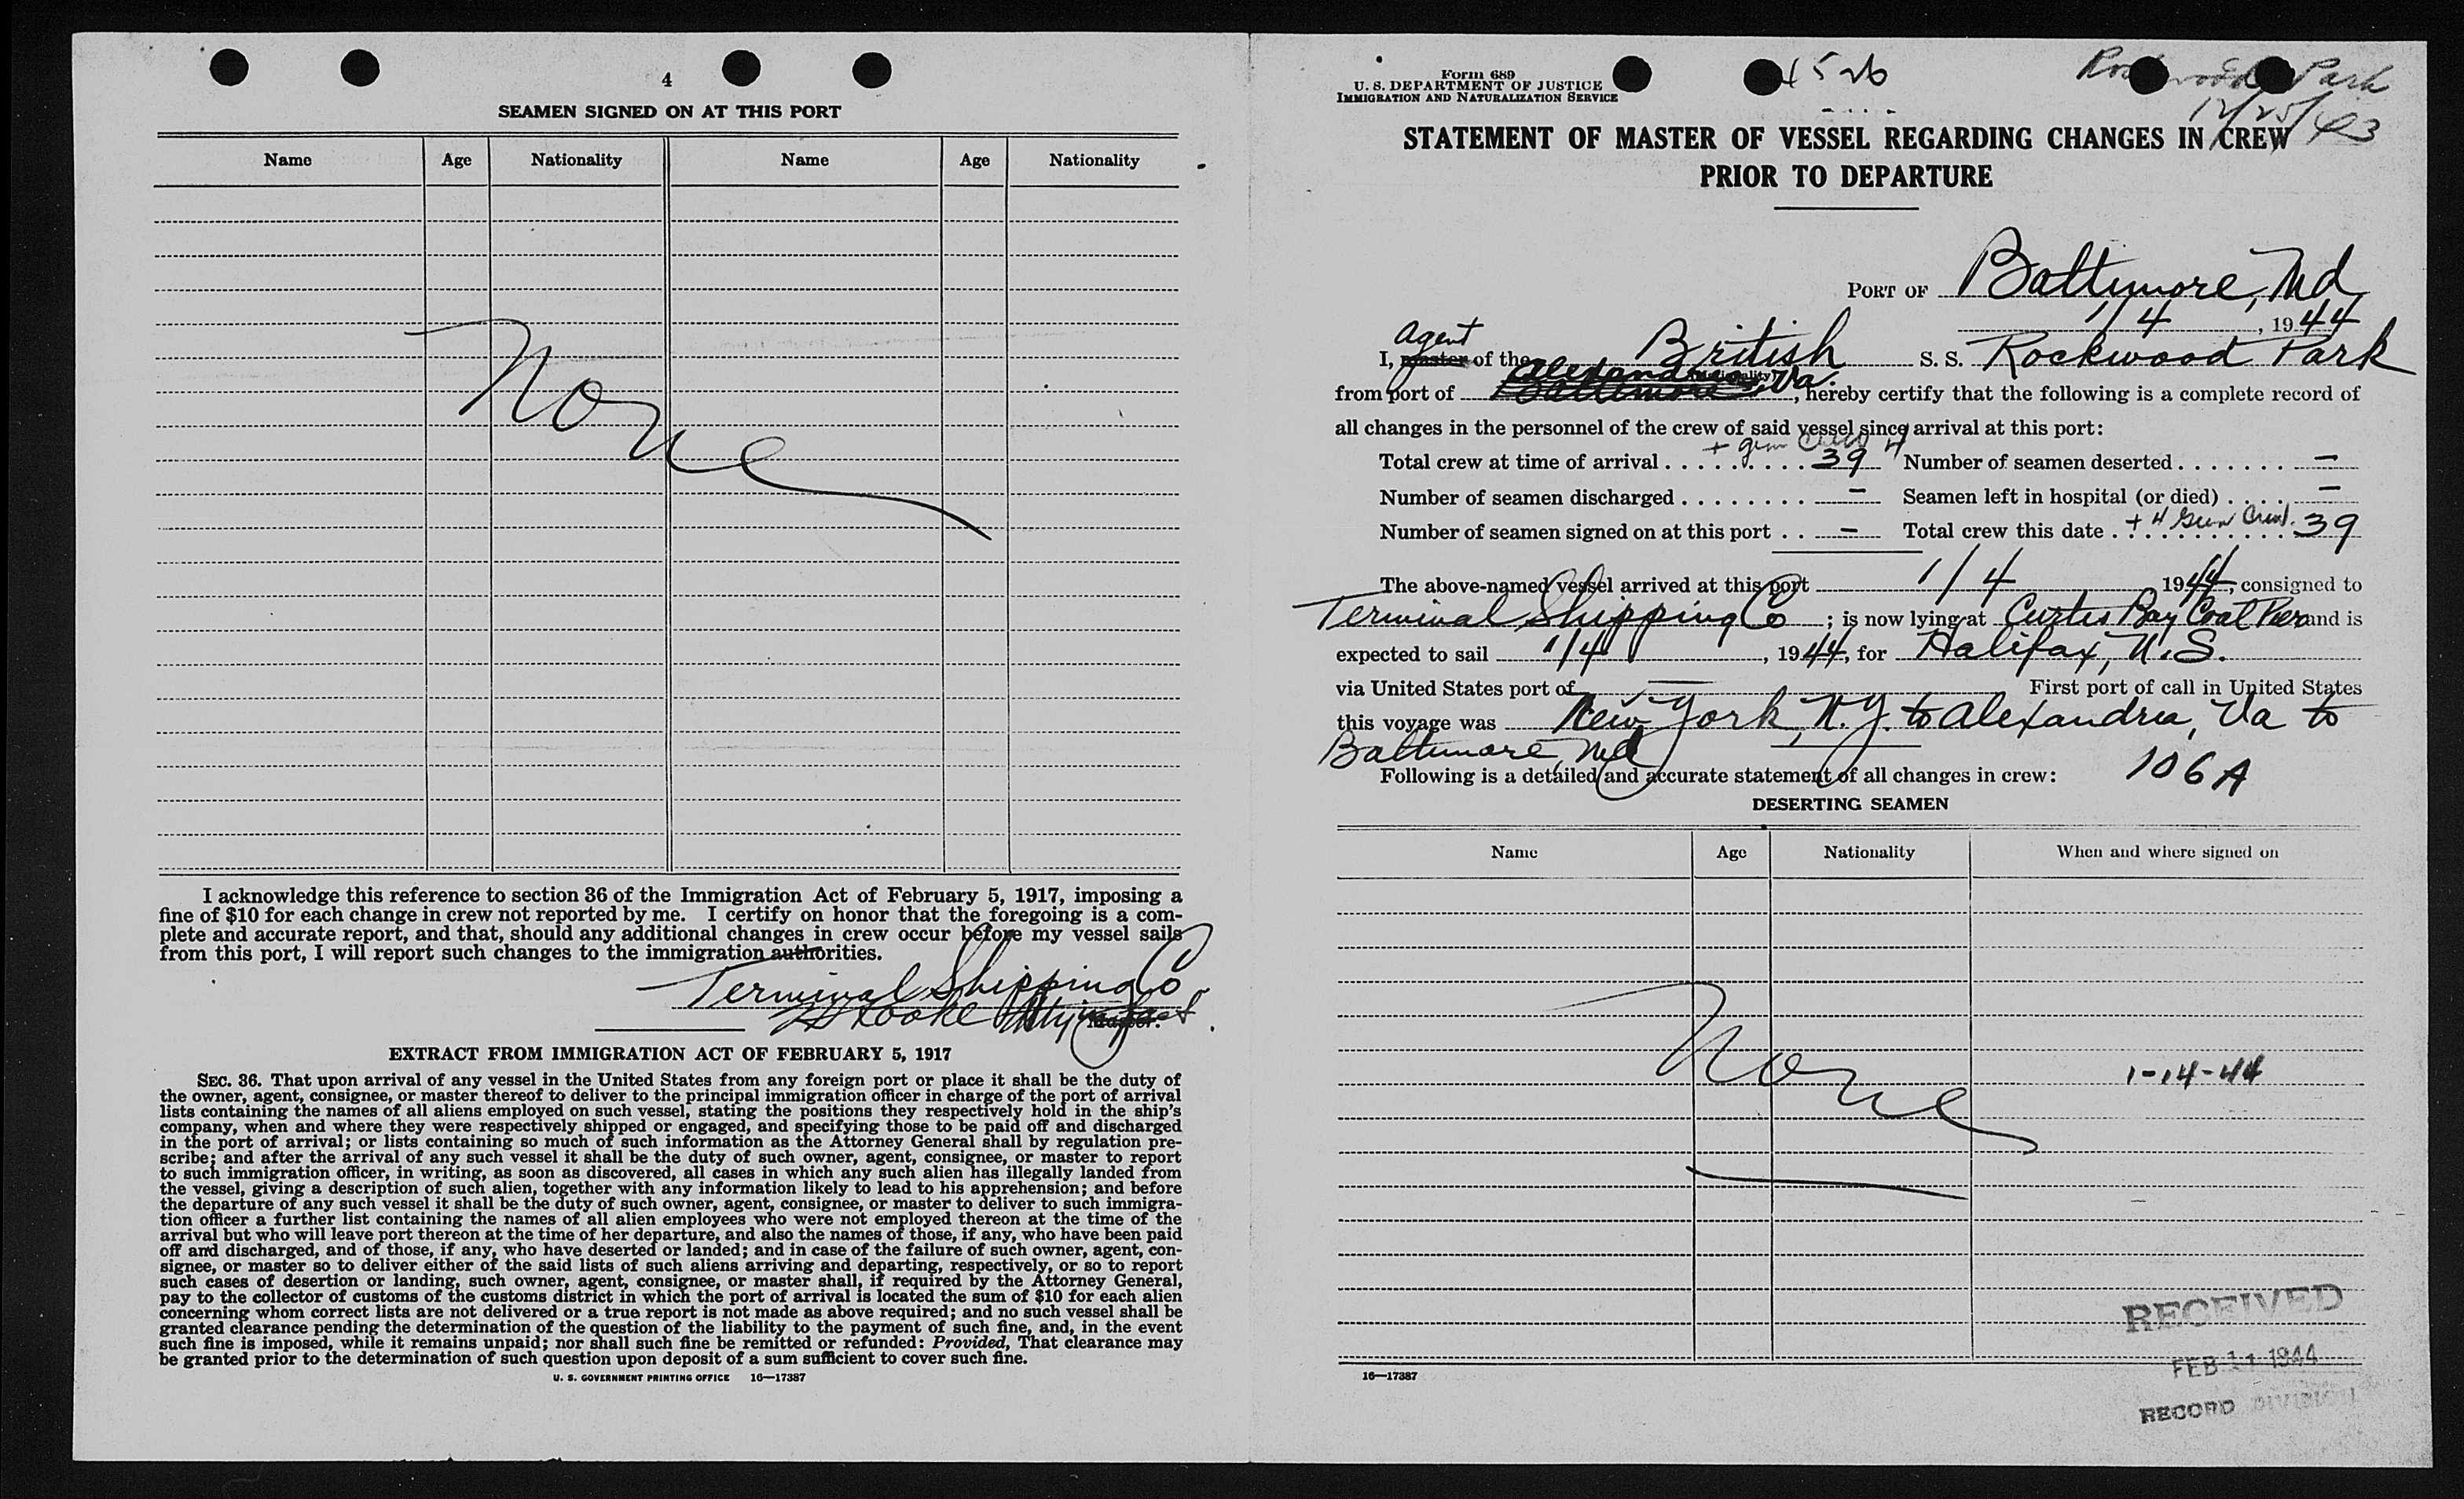 4
SEAMEN SIGNED ON AT THIS PORT
Name Age Nationality Name Age Nationality
None
I acknowledge this reference to section 36 of the Immigration Act of February 5, 1917, imposing a
fine of $10 for each change in crew not reported by me. I certify on honor that the foregoing is a com-
plete and accurate report, and that, should any additional changes in crew occur before my vessel sails
from this port, I will report such changes to the immigration authorities.
Terminal Shipping Co
Master.
EXTRACT FROM IMMIGRATION ACT OF FEBRUARY 5, 1917
SEC. 36. That upon arrival of any vessel in the United States from any foreign port or place it shall be the duty of
the owner, agent, consignee, or master thereof to deliver to the principal immigration officer in charge of the port of arrival
lists containing the names of all aliens employed on such vessel, stating the positions they respectively hold in the ship's
company, when and where they were respectively shipped or engaged, and specifying those to be paid off and discharged
in the port of arrival; or lists containing so much of such information as the Attorney General shall by regulation pre-
scribe; and after the arrival of any such vessel it shall be the duty of such owner, agent, consignee, or master to report
to such immigration officer, in writing, as soon as discovered, all cases in which any such alien has illegally landed from
the vessel, giving a description of such alien, together with any information likely to lead to his apprehension; and before
the departure of any such vessel it shall be the duty of such owner, agent, consignee, or master to deliver to such immigra-
tion officer a further list containing the names of all alien employees who were not employed thereon at the time of the
arrival but who will leave port thereon at the time of her departure, and also the names of those, if any, who have been paid
off and discharged, and of those, if any, who have deserted or landed; and in case of the failure of such owner, agent, con-
signee, or master so to deliver either of the said lists of such aliens arriving and departing, respectively, or so to report
such cases of desertion or landing, such owner, agent, consignee, or master shall, if required by the Attorney General,
pay to the collector of customs of the customs district in which the port of arrival is located the sum of $10 for each alien
concerning whom correct lists are not delivered or a true report is not made as above required; and no such vessel shall be
granted clearance pending the determination of the question of the liability to the payment of such fine, and, in the event
such fine is imposed, while it remains unpaid; nor shall such fine be remitted or refunded: Provided, That clearance may
be granted prior to the determination of such question upon deposit of a sum sufficient to cover such fine.
U. S. GOVERNMENT PRINTING OFFICE 16—17387
Form 689
U. S. DEPARTMENT OF JUSTICE
IMMIGRATION AND NATURALIZATION SERVICE
4526
Rockwood Park
12/25/43
STATEMENT OF MASTER OF VESSEL REGARDING CHANGES IN CREW
PRIOR TO DEPARTURE
PORT OF Baltimore, Md
1/4, 1944
Agent
I, master of the British S. S. Rockwood Park
(Nationality)
Alexandria, Va.
from port of Baltimore, hereby certify that the following is a complete record of
all changes in the personnel of the crew of said vessel since arrival at this port:
+ gun crew 4
Total crew at time of arrival . . . . . . . . . . 39 Number of seamen deserted . . . . . . . –
Number of seamen discharged . . . . . . . . – Seamen left in hospital (or died) . . . . –
Number of seamen signed on at this port . . – Total crew this date . + 4 Gun Crew. 39
The above-named vessel arrived at this port 1/4 1944, consigned to
Terminal Shipping Co; is now lying at Curtis Bay Coal Pier and is
expected to sail 1/4, 1944, for Halifax, N.S.
via United States port of — First port of call in United States
this voyage was New York, N.Y. to Alexandria, Va to
Baltimore, Md
Following is a detailed and accurate statement of all changes in crew: 106A
DESERTING SEAMEN
Name Age Nationality When and where signed on
None
1-14-44
RECEIVED
FEB 11 1944
RECORD DIVISION
16—17387